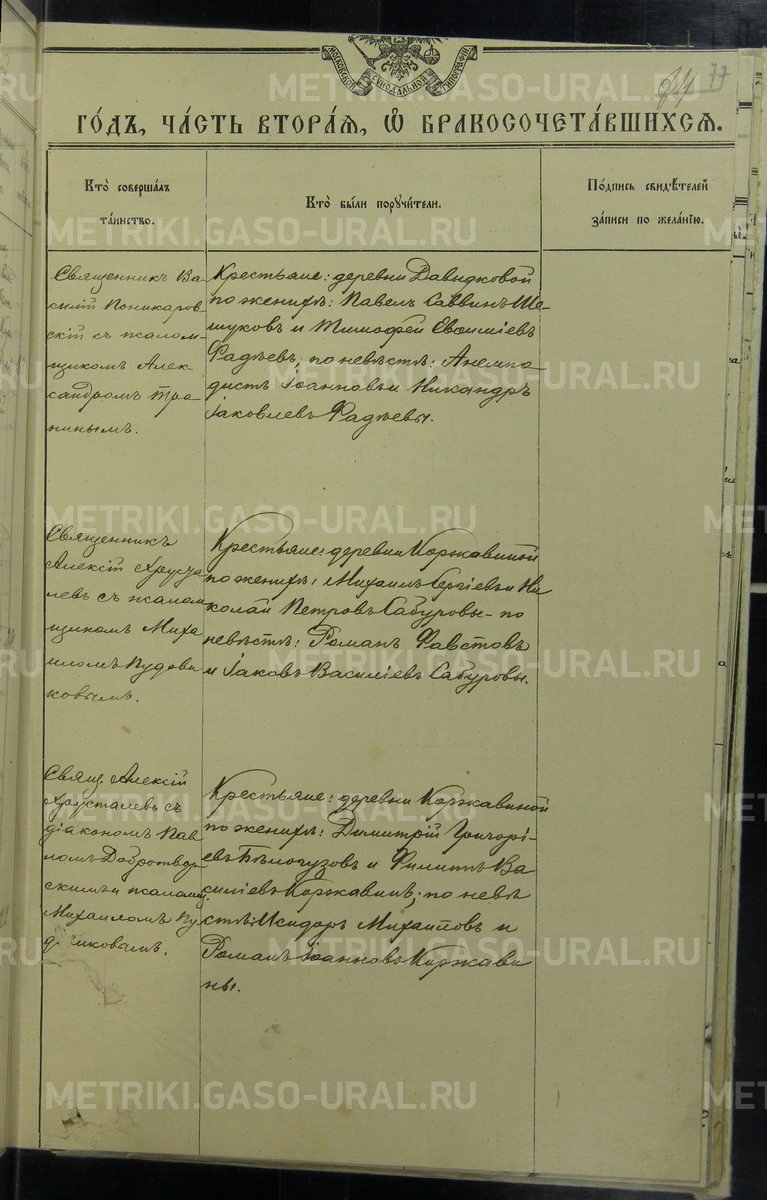 МОСКОВСКОЙ СѴНОДАЛЬНОЙ ТИПОГРАФІИ
84 77
ГО́ДЪ, ЧА́СТЬ ВТОРА́Я, Ѡ БРАКОСОЧЕТА́ВШИХСЯ.
Кто̀ соверша́лъ
та́инство.
Кто̀ бы́ли поручи́тели.
По́дпись свидѣ́телей
за́писи по жела́нію.
Священникъ Ва-
силій Поникаров-
скій съ псалом-
щикомъ Алек-
сандромъ Тро-
нинымъ.
Крестьяне: деревни Давыдковой
по женихѣ: Павелъ Саввинъ Ше-
шуковъ и Тимофей Евѳиміевъ
Фадѣевъ; по невѣстѣ: Анемпо
дистъ Іоанновъ и Никандръ
Іаковлевъ Фадѣевы.
Священникъ
Алексій Хруста
левъ съ псалом
щикомъ Миха
иломъ Пудови
ковымъ.
Крестьяне: деревни Коржавиной
по женихѣ: Михаилъ Сергіевъ и Ни
колай Петровъ Сабуровы - по
невѣстѣ: Романъ Фавстовъ
и Іаковъ Василіевъ Сабуровы.
Свящ. Алексій
Хрусталевъ съ
діакономъ Пав
ломъ Добротвор
скимъ и псаломщ.
Михаиломъ Пу
овиковымъ.
Крестьяне: деревни Коржавиной
по женихѣ: Димитрій Григорі-
евъ Бѣлогузовъ и Филиппъ Ва
силіевъ Коржавинъ; по невѣ
стѣ: Исидоръ Михаиловъ и
Романъ Іоанновъ Коржави
ны.
METRIKI.GASO-URAL.RU